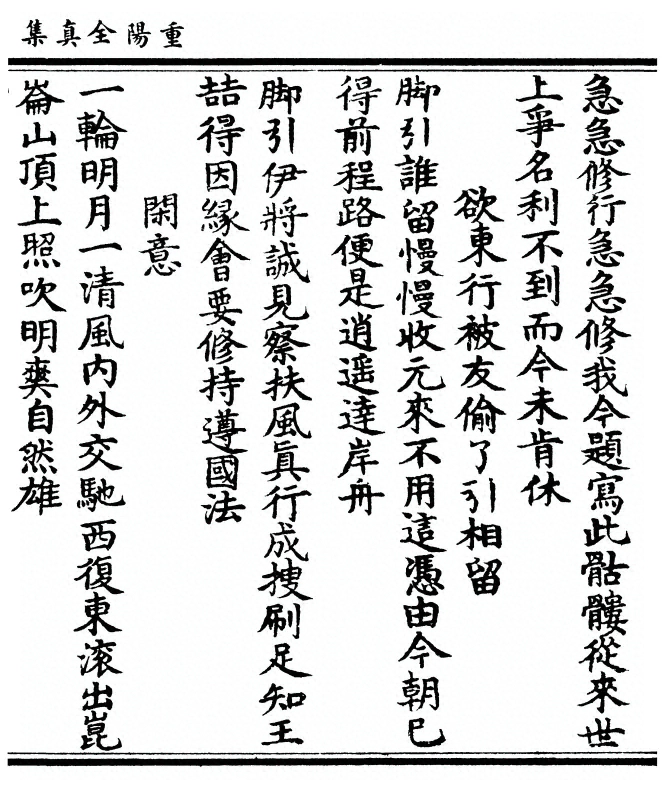 重陽全真集
急急修行急急修我今題寫此骷髏從來世
上爭名利不到而今未肯休
欲東行被友偷了引相留
脚引誰留慢慢收元來不用這憑由今朝已
得前程路便是逍遥達岸舟
脚引伊將誠見察扶風眞行成搜刷足知王
喆得因緣會要修持遵國法
閑意
一輪明月一清風内外交馳西復東滚出崑
崙山頂上照吹明爽自然雄